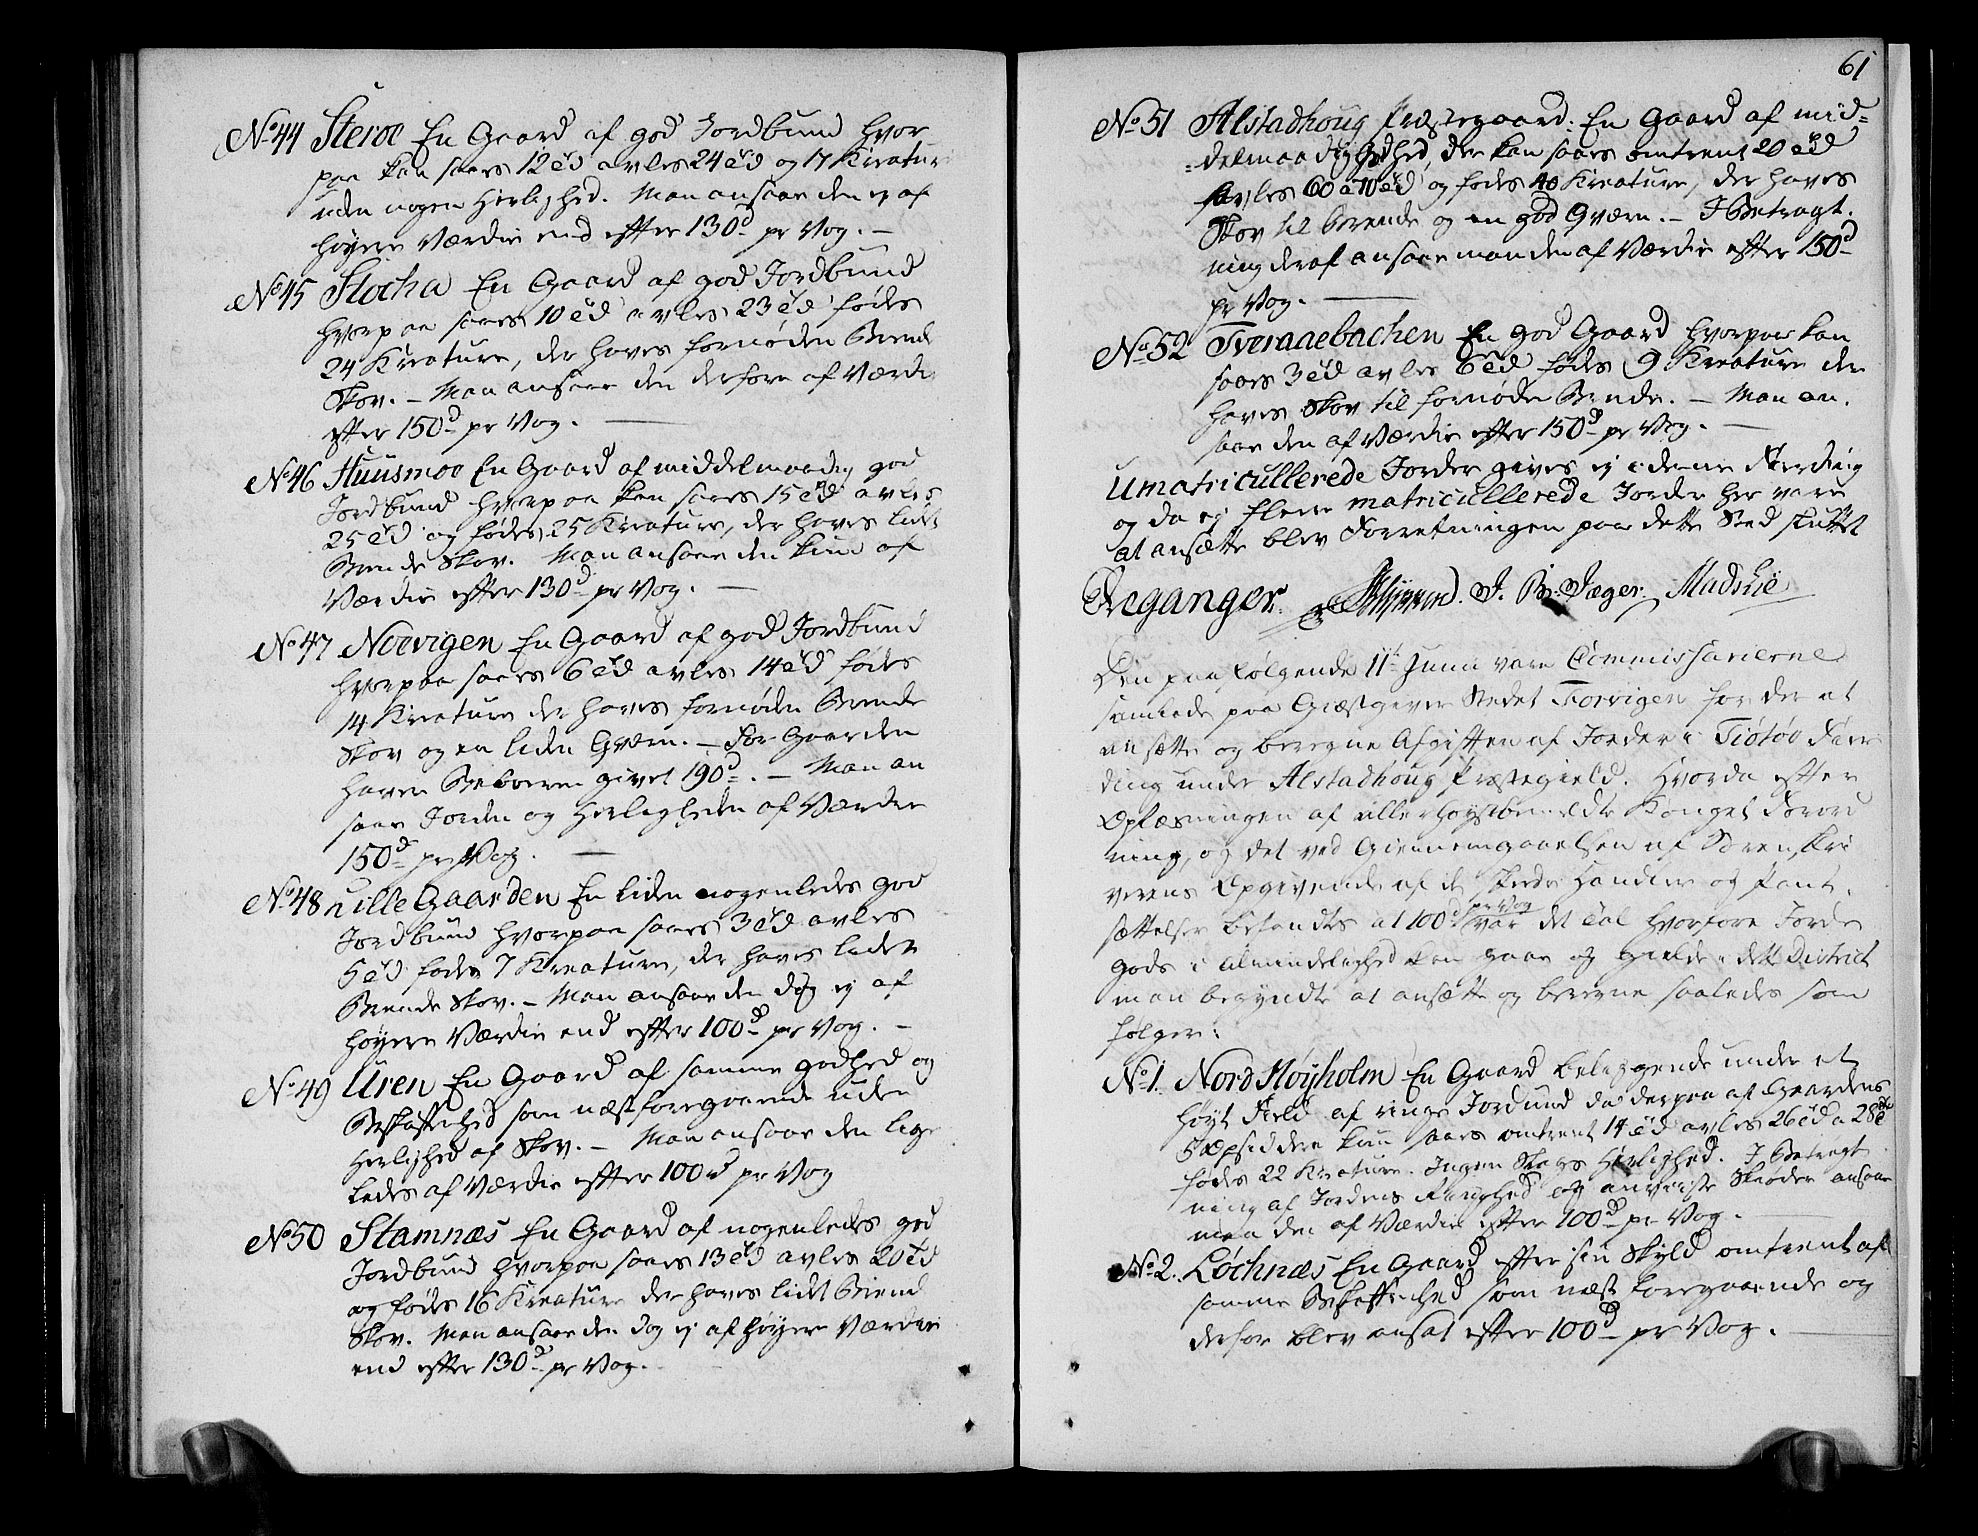 No 44 Steroe En Gaard af god Jordbund hvor
paa kan saaes 12 Td avles 24 Td og 17 Kreature
uden nogen Herlighed. Man ansaae den ej af
høyere Værdie end efter 130 d pr Vog. —
No 45 Flocha En Gaard af god Jordbund
hvorpaa saaes 10 Td avles 23 Td fødes
24 Kreature, der haves fornøden Brende
Skov. — Man ansaae den derfore af Værdie
efter 150 d pr Vog. —
No 46 Huusmoe En Gaard af middelmaadig god
Jordbund hvorpaa kan saaes 15 Td avles
25 Td og fødes 25 Kreature, der haves lidet
Brende Skov. Man ansaae den kun af
Værdie efter 130 d pr Vog. —
No 47 Noevigen En Gaard af god Jordbund
hvorpaa saaes 6 Td avles 14 Td fødes
14 Kreature der haves fornøden Brende
Skov og en liden Qværn. — For Gaarden
haver Beboeren givet 190 d. — Man an
saae Jorden og Herligheden af Værdie
150 d pr Vog. —
No 48 Lille Gaarden En liden nogenledes god
Jordbund hvorpaa saaes 3 Td avles
5 Td fødes 7 Kreature, der haves lidet
Brende Skov. — Man ansaae den dog ej af
høyere Værdie end efter 100 d pr Vog. —
No 49 Uren En Gaard af samme godhed og
Beskaffenhed som næstforegaaende uden
Herlighed af Skov. — Man ansaae den lige
ledes af Værdie efter 100 d pr Vog
No 50 Stamnæs En Gaard af nogenledes god
Jordbund hvorpaa saaes 13 Td avles 20 Td
og fødes 16 Kreature der haves lidt Brend
Skov. Man ansaae den dog ej af høyere Værdie
end efter 130 d pr Vog.
61
No 51 Alstadhoug Præstegaard. En Gaard af mid=
=delmaadig Godhed, der kan saaes omtrent 20 Td
avles 60 a 70 Td og fødes 40 Kreature, der haves
Skov til Brende og en god Qværn. — I Betragt.
ning deraf ansaae man den af Værdie efter 150 d
pr Vog. —
No 52 Tveraaebachen En god Gaard hvorpaa kan
saaes 3 Td avles 6 Td fødes 9 Kreature der
haves Skov til fornøden Brende. — Man an.
saae den af Værdie efter 150 d pr Vog. —
Umatricullerede Jorder gives ej i denne Fierding
og da ej flere matricullerede Jorder her vare
at ansætte blev Forretningen paa dette Sted sluttet
Areganger. J. B. Jæger. Madshie
Den paa følgende 11te Junii vare Commissarierne
samlede paa Giæstgiver Stedet Forvigen for der at
ansætte og beregne Afgiften af Jorder i Tiøtøe Fier
ding under Alstadhoug Præstegield. Hvorda efter
Oplæsningen af allerhøystbemeldte Kongel Forord
ning, og det ved Giennemgaaelsen af Soren,skri
verens Opgivende af de skeede Handler og Pant.
sættelser befandtes at 100 d pr Vog var det Tal hvorfore Jorde
gods i Almindelighed kan gaae og gielde i dette District
man begyndte at ansætte og beregne saaledes som
følger:
No 1. Nord Høyholm En Gaard beliggende under et
høyt Field af ringe Jordund da derpaa af Gaardens
3 Opsiddere kun saaes omtrent 14 Td avles 26 Td a 28 Td
fødes 22 Kreature. Ingen Skovs Herlighed. I Betragt
ning af Jordens Ringhed og anviiste Skiøder ansaae
man den af Værdie efter 100 d pr Vog. —
No 2. Lochnæs En Gaard efter sin Skyld omtrent af
samme Beskaffenhed som næst foregaaende og
derfor blev ansat efter 100 d pr Vog. —